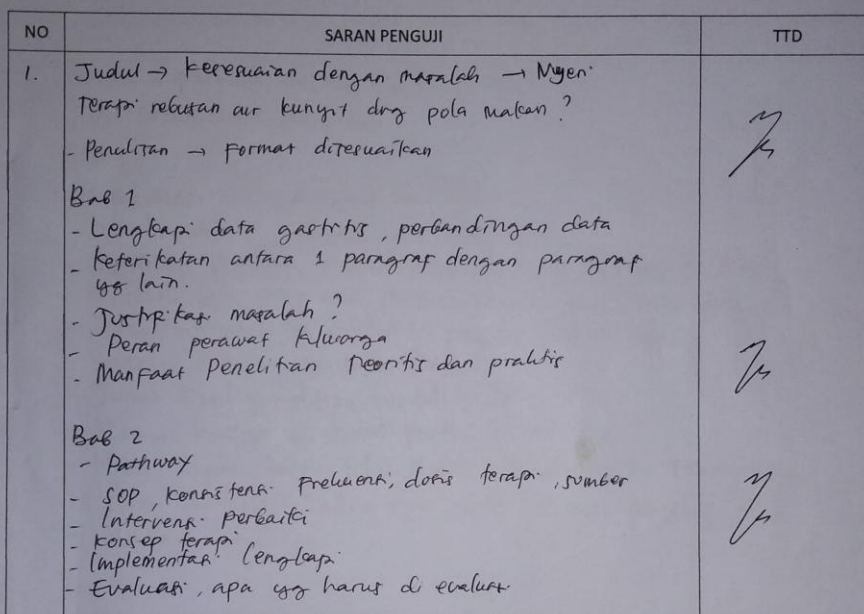 NO SARAN PENGUJI TTD
1. Judul → Kesesuaian dengan masalah → Nyeri
Terapi rebusan air kunyit dng pola makan?
- Penulisan → Format disesuaikan
Bab 1
- Lengkapi data gastritis, perbandingan data
- Keterikatan antara 1 paragraf dengan paragraf
yg lain.
- Justifikasi masalah?
- Peran perawat keluarga
- Manfaat Penelitian Teoritis dan praktis
Bab 2
- Pathway
- SOP, konsistensi frekuensi, dosis terapi, sumber
- Intervensi perbaiki
- Konsep terapi
- Implementasi lengkapi
- Evaluasi, apa yg harus di evaluasi